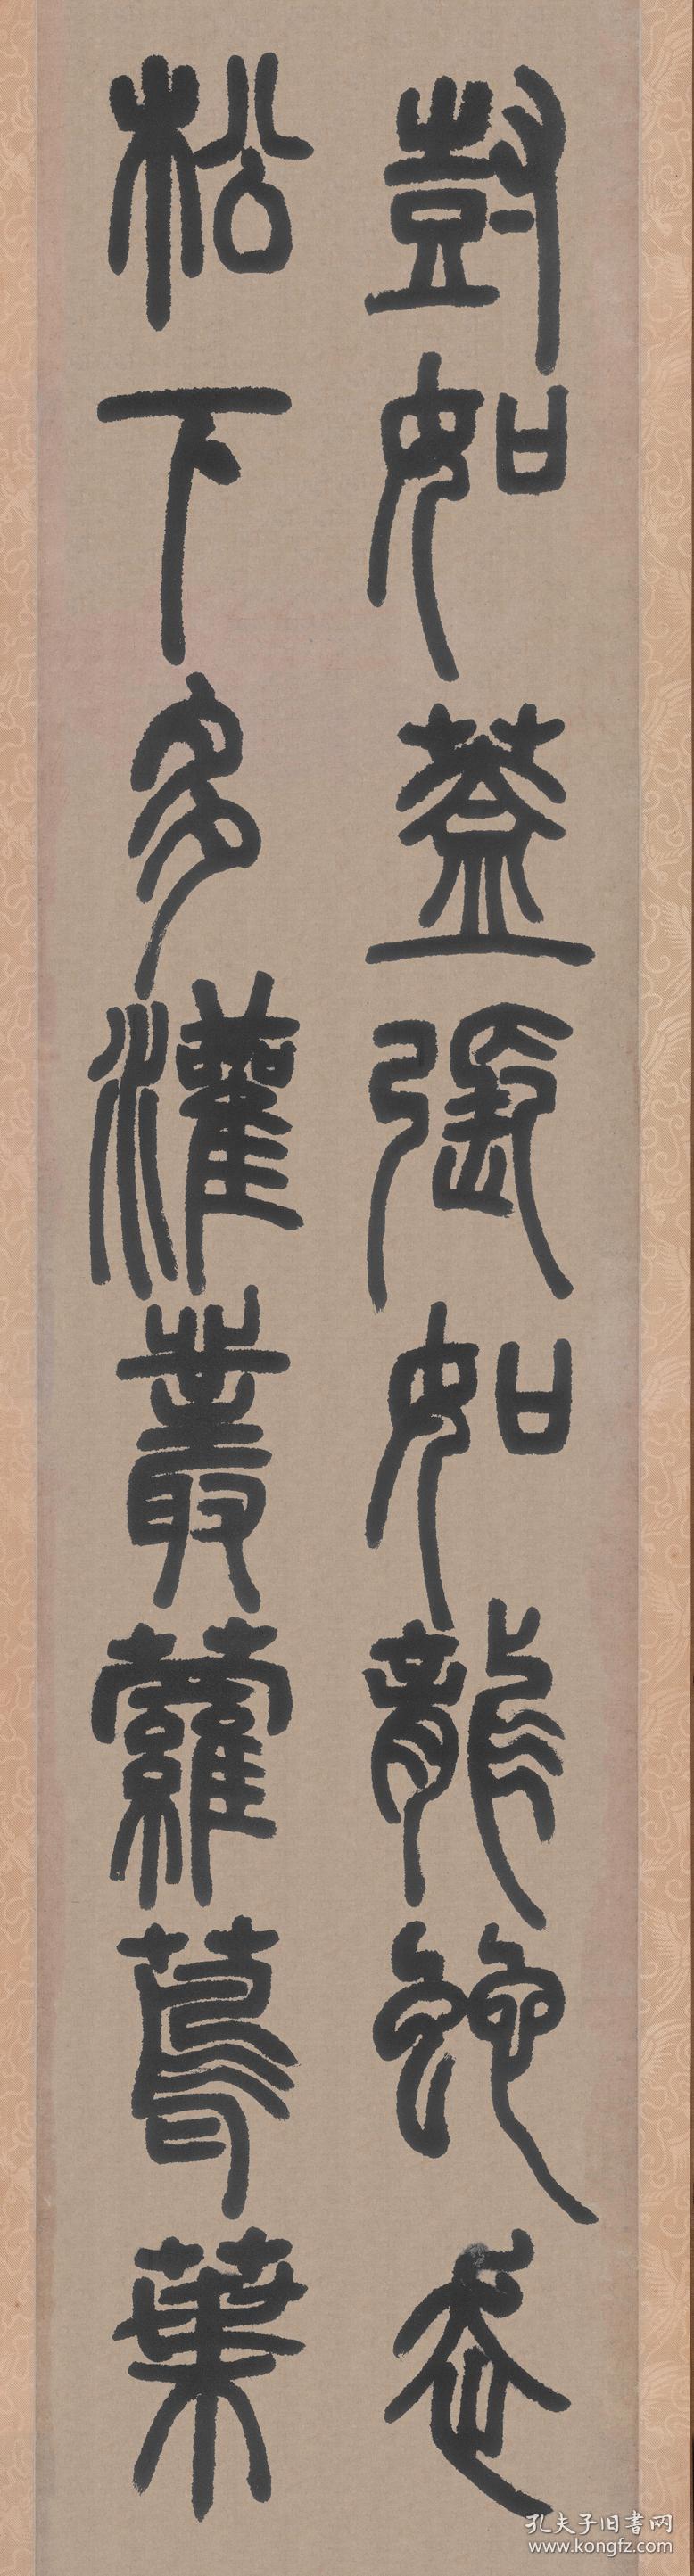 尌如蓋張如龍蛇走
松下多灌叢蘿蔦葉
孔夫子旧書网
www.kongfz.com